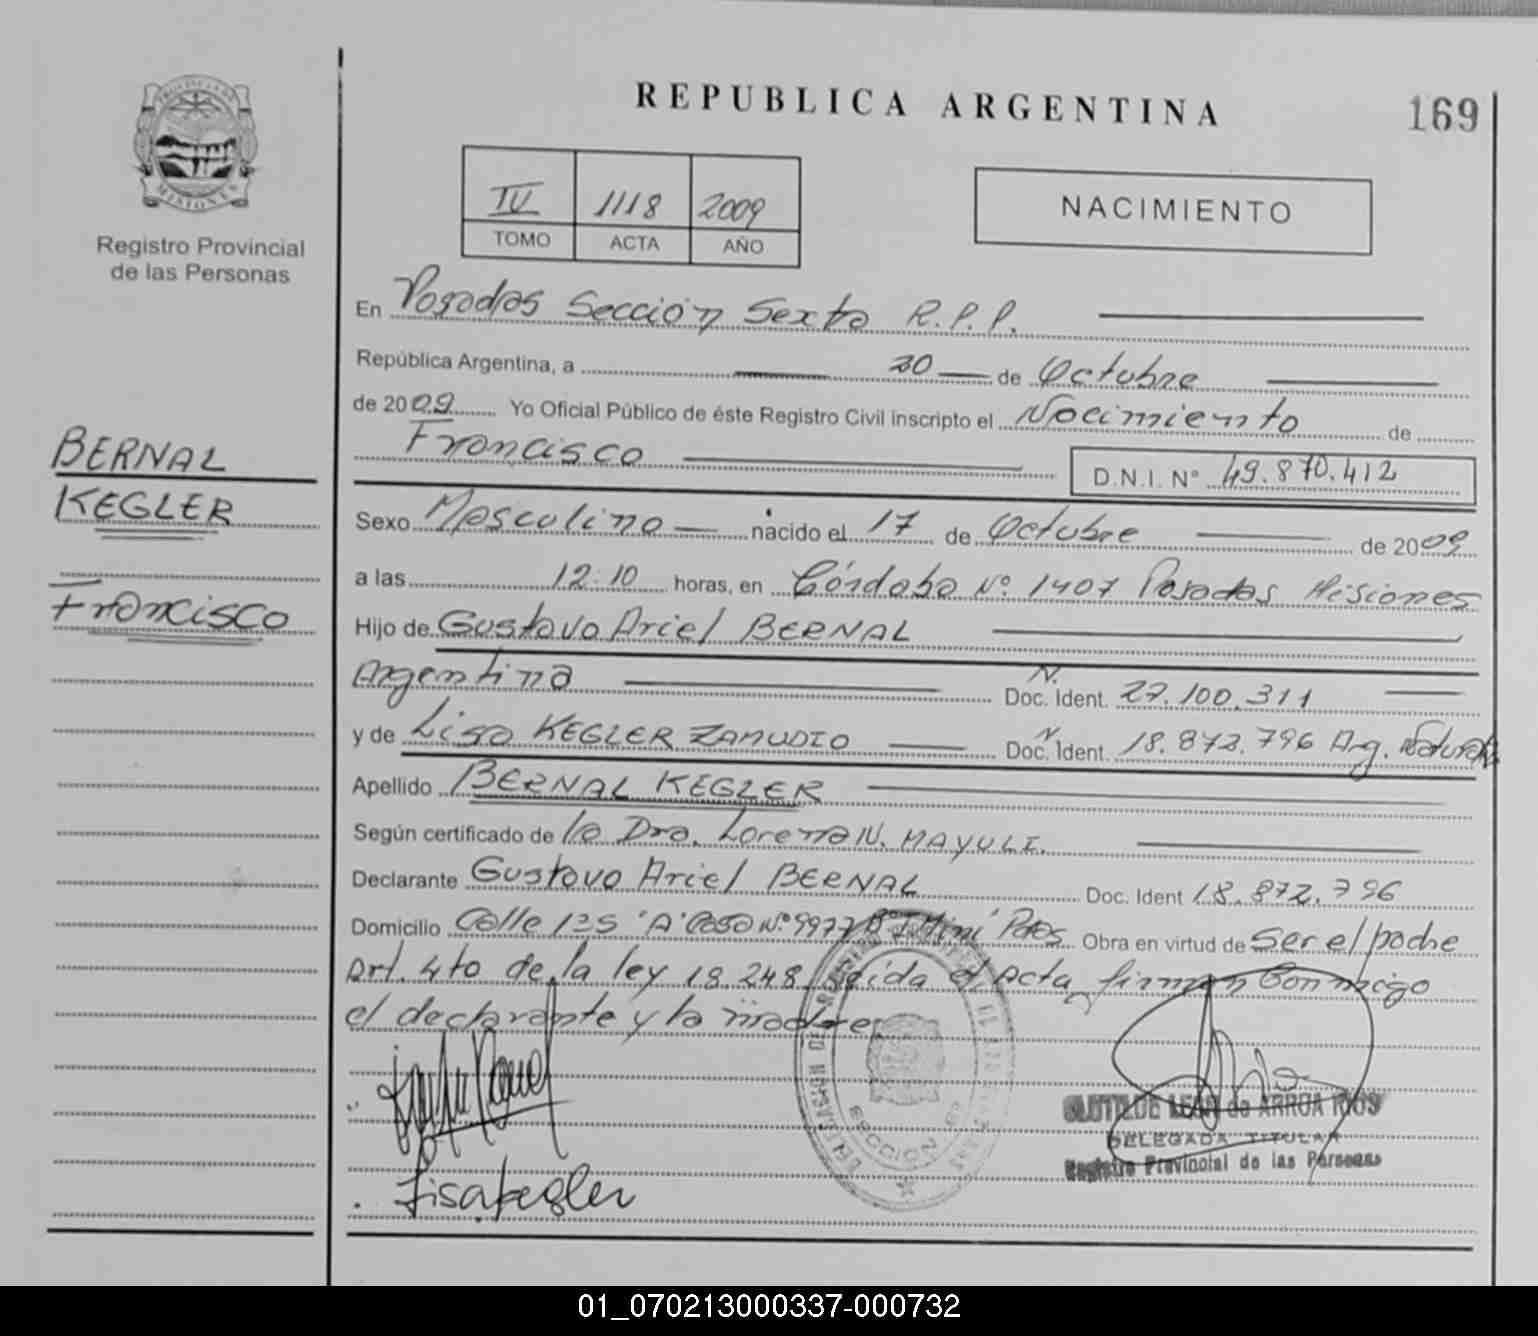 REPUBLICA ARGENTINA
169
PROVINCIA DE
MISIONES
Registro Provincial
de las Personas
IV 1118 2009
TOMO ACTA AÑO
NACIMIENTO
En Posadas Sección Sexta R.P.P.
República Argentina, a 30 de Octubre
de 2009 Yo Oficial Público de éste Registro Civil inscripto el Nacimiento de
Francisco D.N.I. Nº 49.870.412
BERNAL
KEGLER
Francisco
Sexo Masculino nacido el 17 de Octubre de 2009
a las 12:10 horas, en Córdoba Nº 1407 Posadas Misiones
Hijo de Gustavo Ariel BERNAL
Argentina N. Doc. Ident. 27.100.311
y de Lisa KEGLER ZAMUDIO N Doc. Ident. 18.872.796 Arg.
Apellido BERNAL KEGLER
Según certificado de la Dra. Lorena N. MAYULI.
Declarante Gustavo Ariel BERNAL Doc. Ident 18.872.796
Domicilio Calle 125 "A" Casa Nº 9977 Bº I Miní Pdas Obra en virtud de ser el padre
Art. 4to de la ley 18.248 leida el acta, firman conmigo
el declarante y la madre
Lisa Kegler
SECCION 6ª
CLOTILDE LEAL de ARRUA RIOS
DELEGADA TITULAR
Registro Provincial de las Personas
01_070213000337-000732